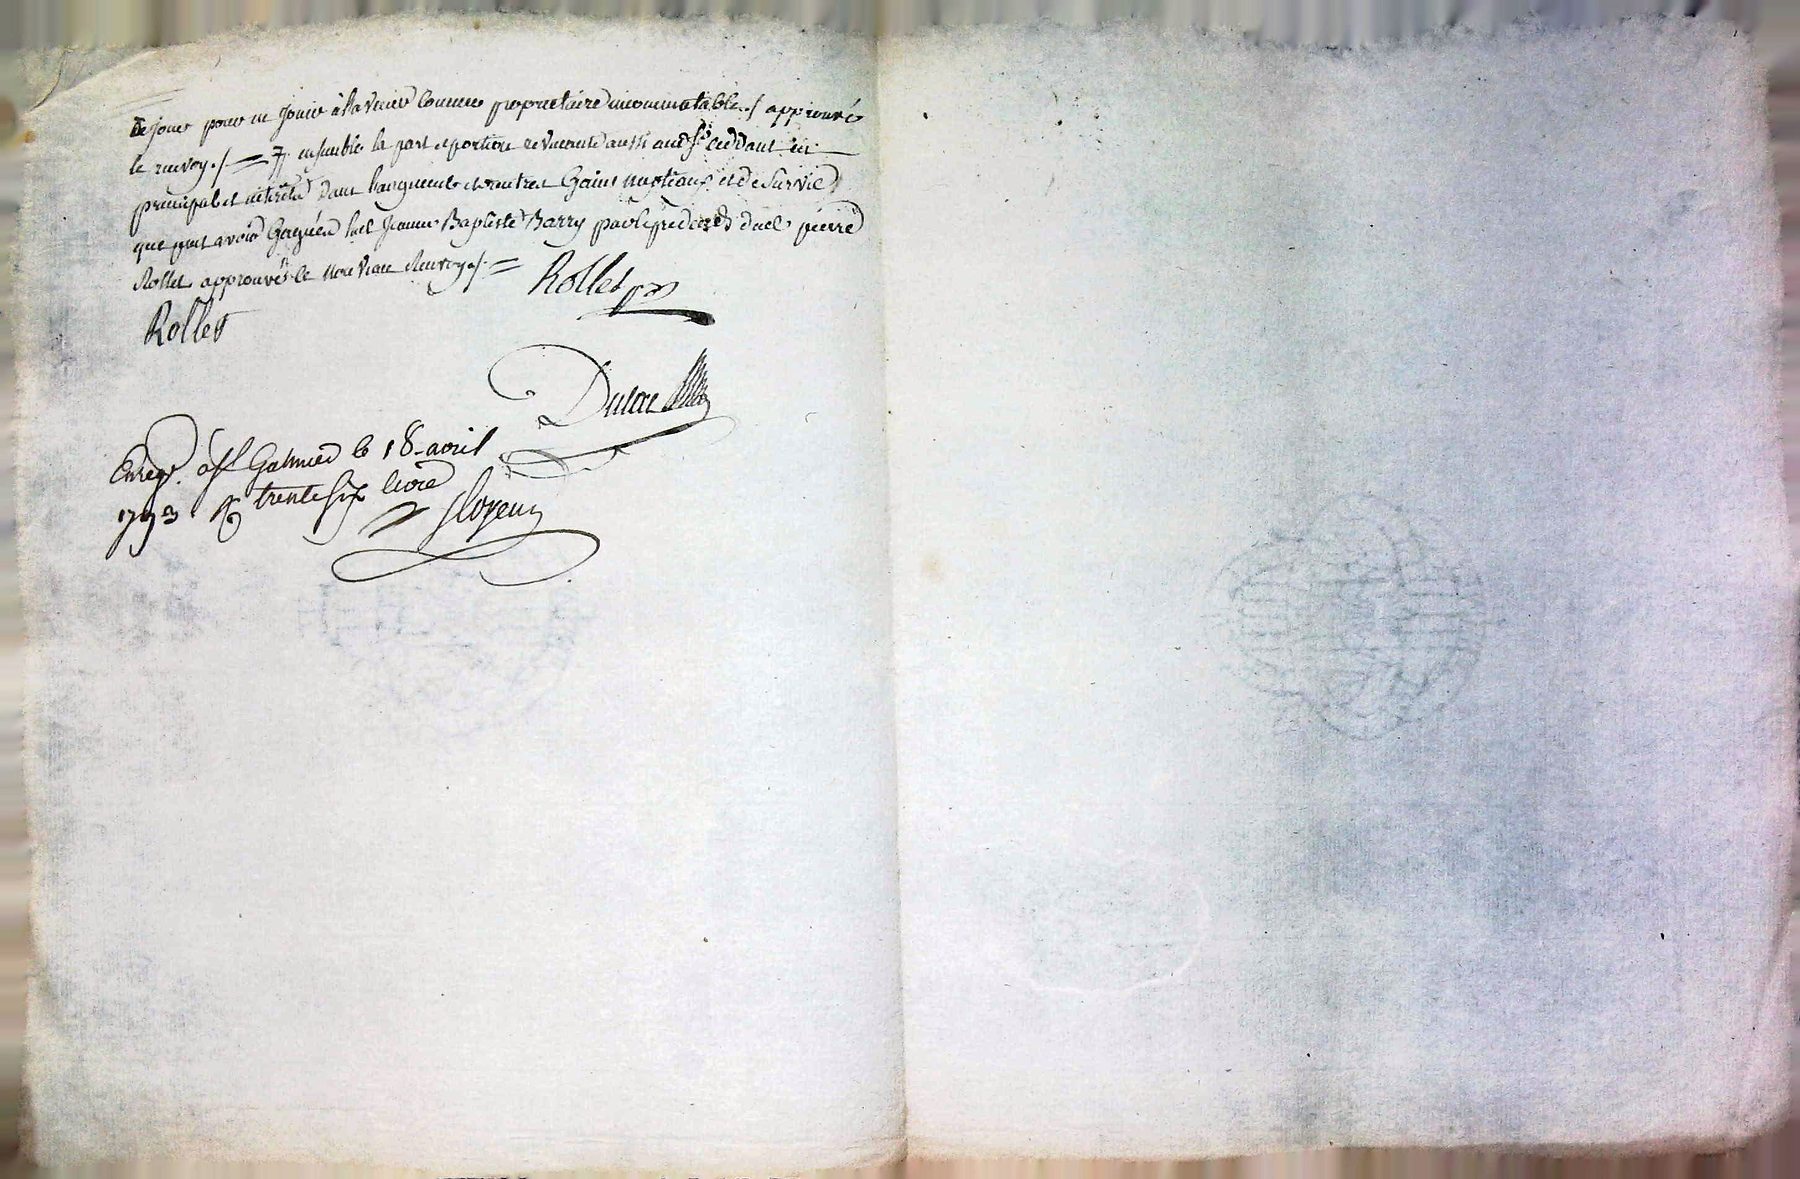 de jour pour en Jouir à l'avenir Comme proprietaire incommutable ./. approuvé
le renvoy ./. = ensemble la part et portion revenante aussi aud. Sr. ceddant en
principal et interêts dans l'augment et autres Gains nuptiaux et de Survie
que peut avoir Gagnés lad. Jeanne Baptiste Barry par le predeces dud. pierre
Rollet approuvés le nouveau Renvoy ./. = Rollet
Rollet
Dulac
Enregé. à St Galmier le 18 avril
1793 R trente six livre